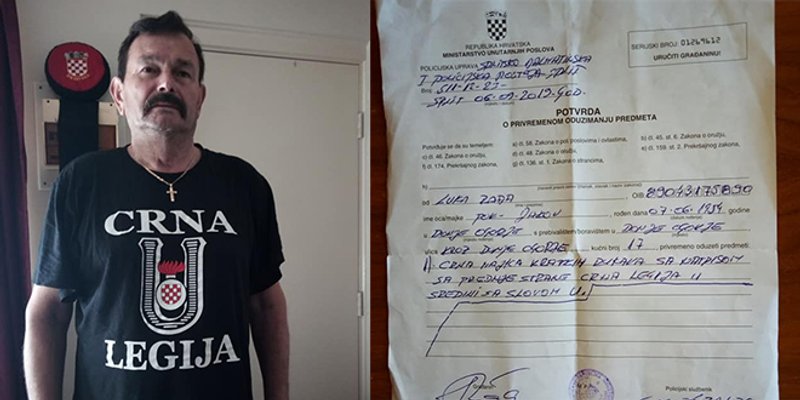 CRNA
U
LEGIJA
REPUBLIKA HRVATSKA
MINISTARSTVO UNUTARNJIH POSLOVA
POLICIJSKA UPRAVA SPLITSKO DALMATINSKA
I POLICIJSKA POSTAJA SPLIT
Broj: 511-12-21-
SPLIT 06.09.2019.GOD.
SERIJSKI BROJ: 01269612
URUČITI GRAĐANINU
POTVRDA
O PRIVREMENOM ODUZIMANJU PREDMETA
Potvrđuje se da su temeljem:
a) čl. 58. Zakona o pol. poslovima i ovlastima,
b) čl. 45. st. 6. Zakona o oružju,
c) čl. 46. Zakona o oružju,
d) čl. 48. Zakona o oružju,
e) čl. 159. st. 2. Prekršajnog zakona,
f) čl. 174. Prekršajnog zakona,
g) čl. 136. st. 1. Zakona o strancima,
h)
od LUKA ZADA, OIB 89043175890
ime oca/majke POK- JAKOV, rođen dana 07-06.1954 godine
u DONJE OGORJE s prebivalištem/boravištem u DONJE OGORJE
ulica KROZ DONJE OGORJE, kućni broj 17 privremeno oduzeti predmeti:
1) CRNA MAJICA KRATKIH RUKAVA SA NATPISOM
SA PREDNJE STRANE CRNA LEGIJA U
SREDINI SA SLOVOM U.
Policijski službenik